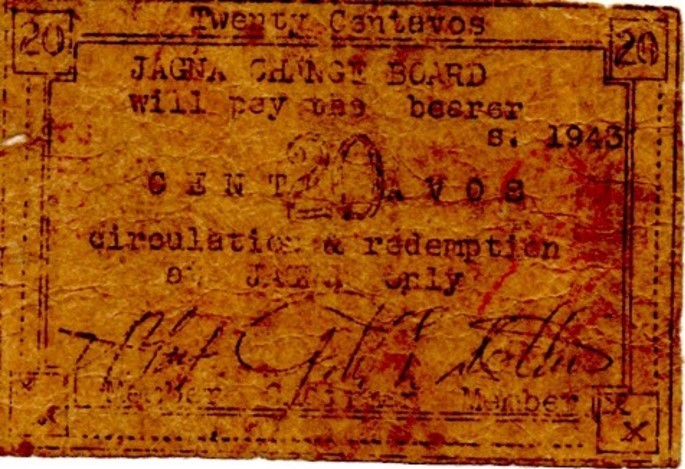 Twenty Centavos
20 20
JAGNA CHANGE BOARD
will pay the bearer
s. 1943
20
CENTAVOS
circulation & redemption
at JAGNA only
Member Chairman Member
x x
x x